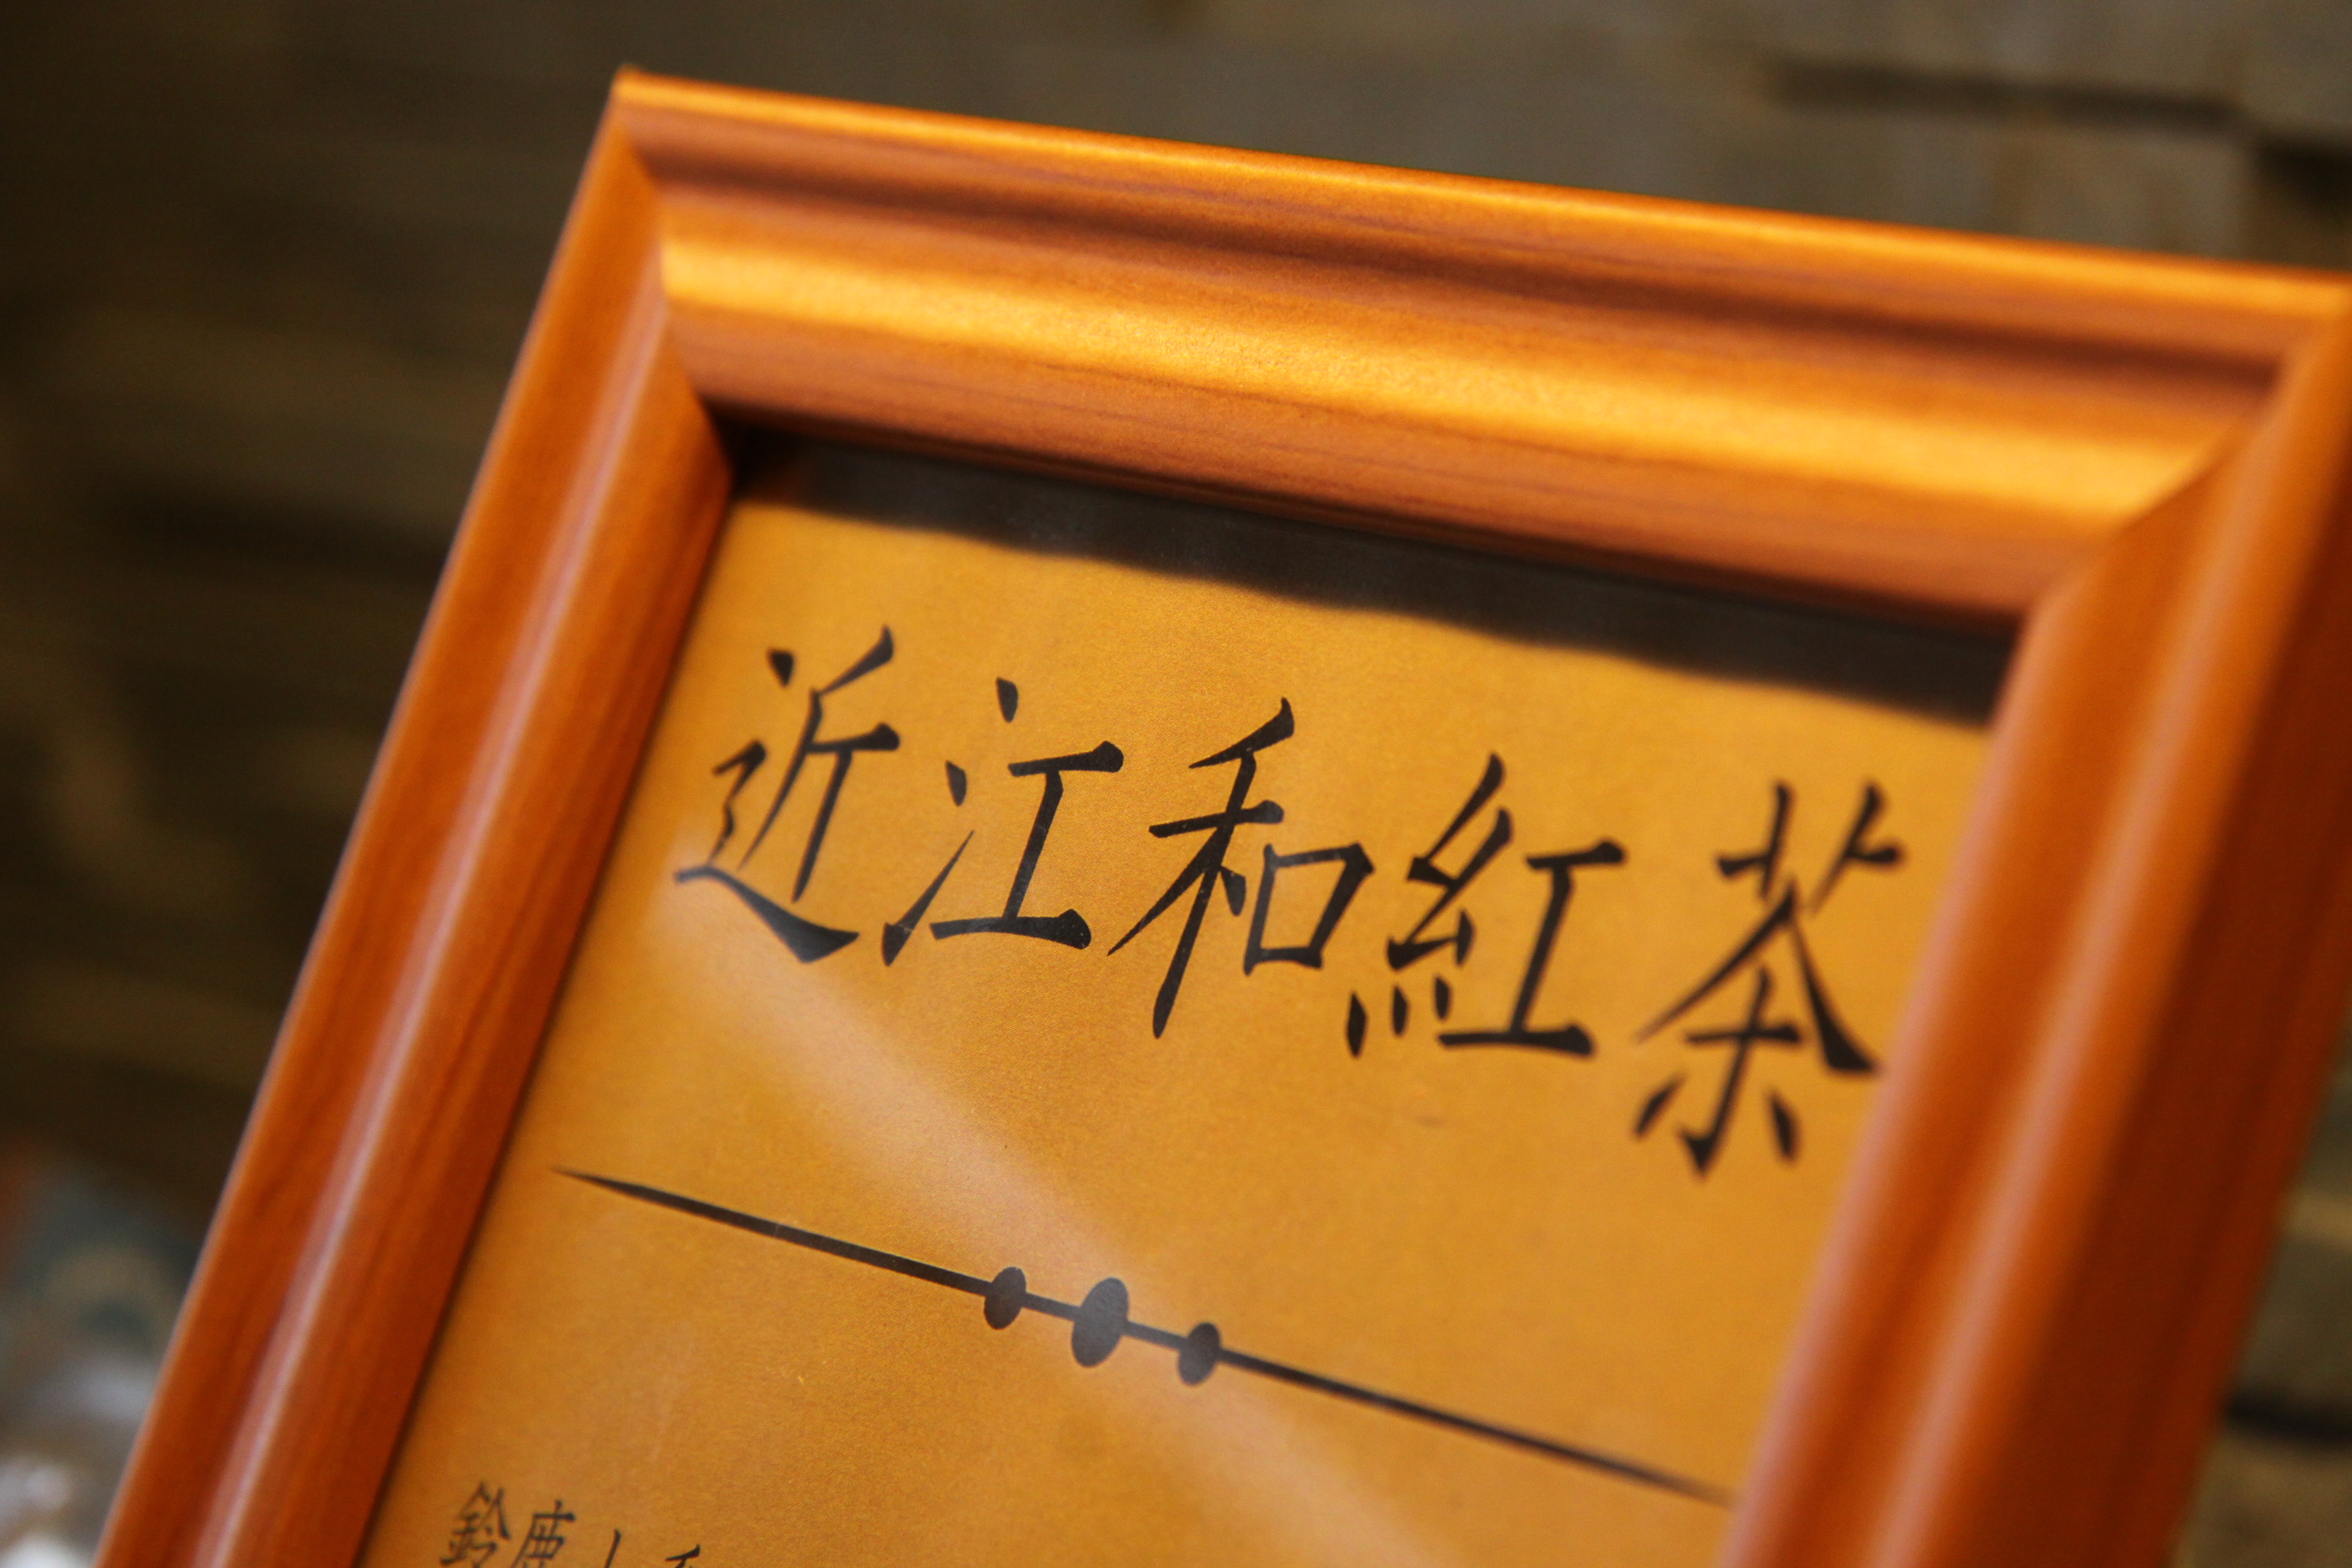 近江和紅茶
鈴鹿